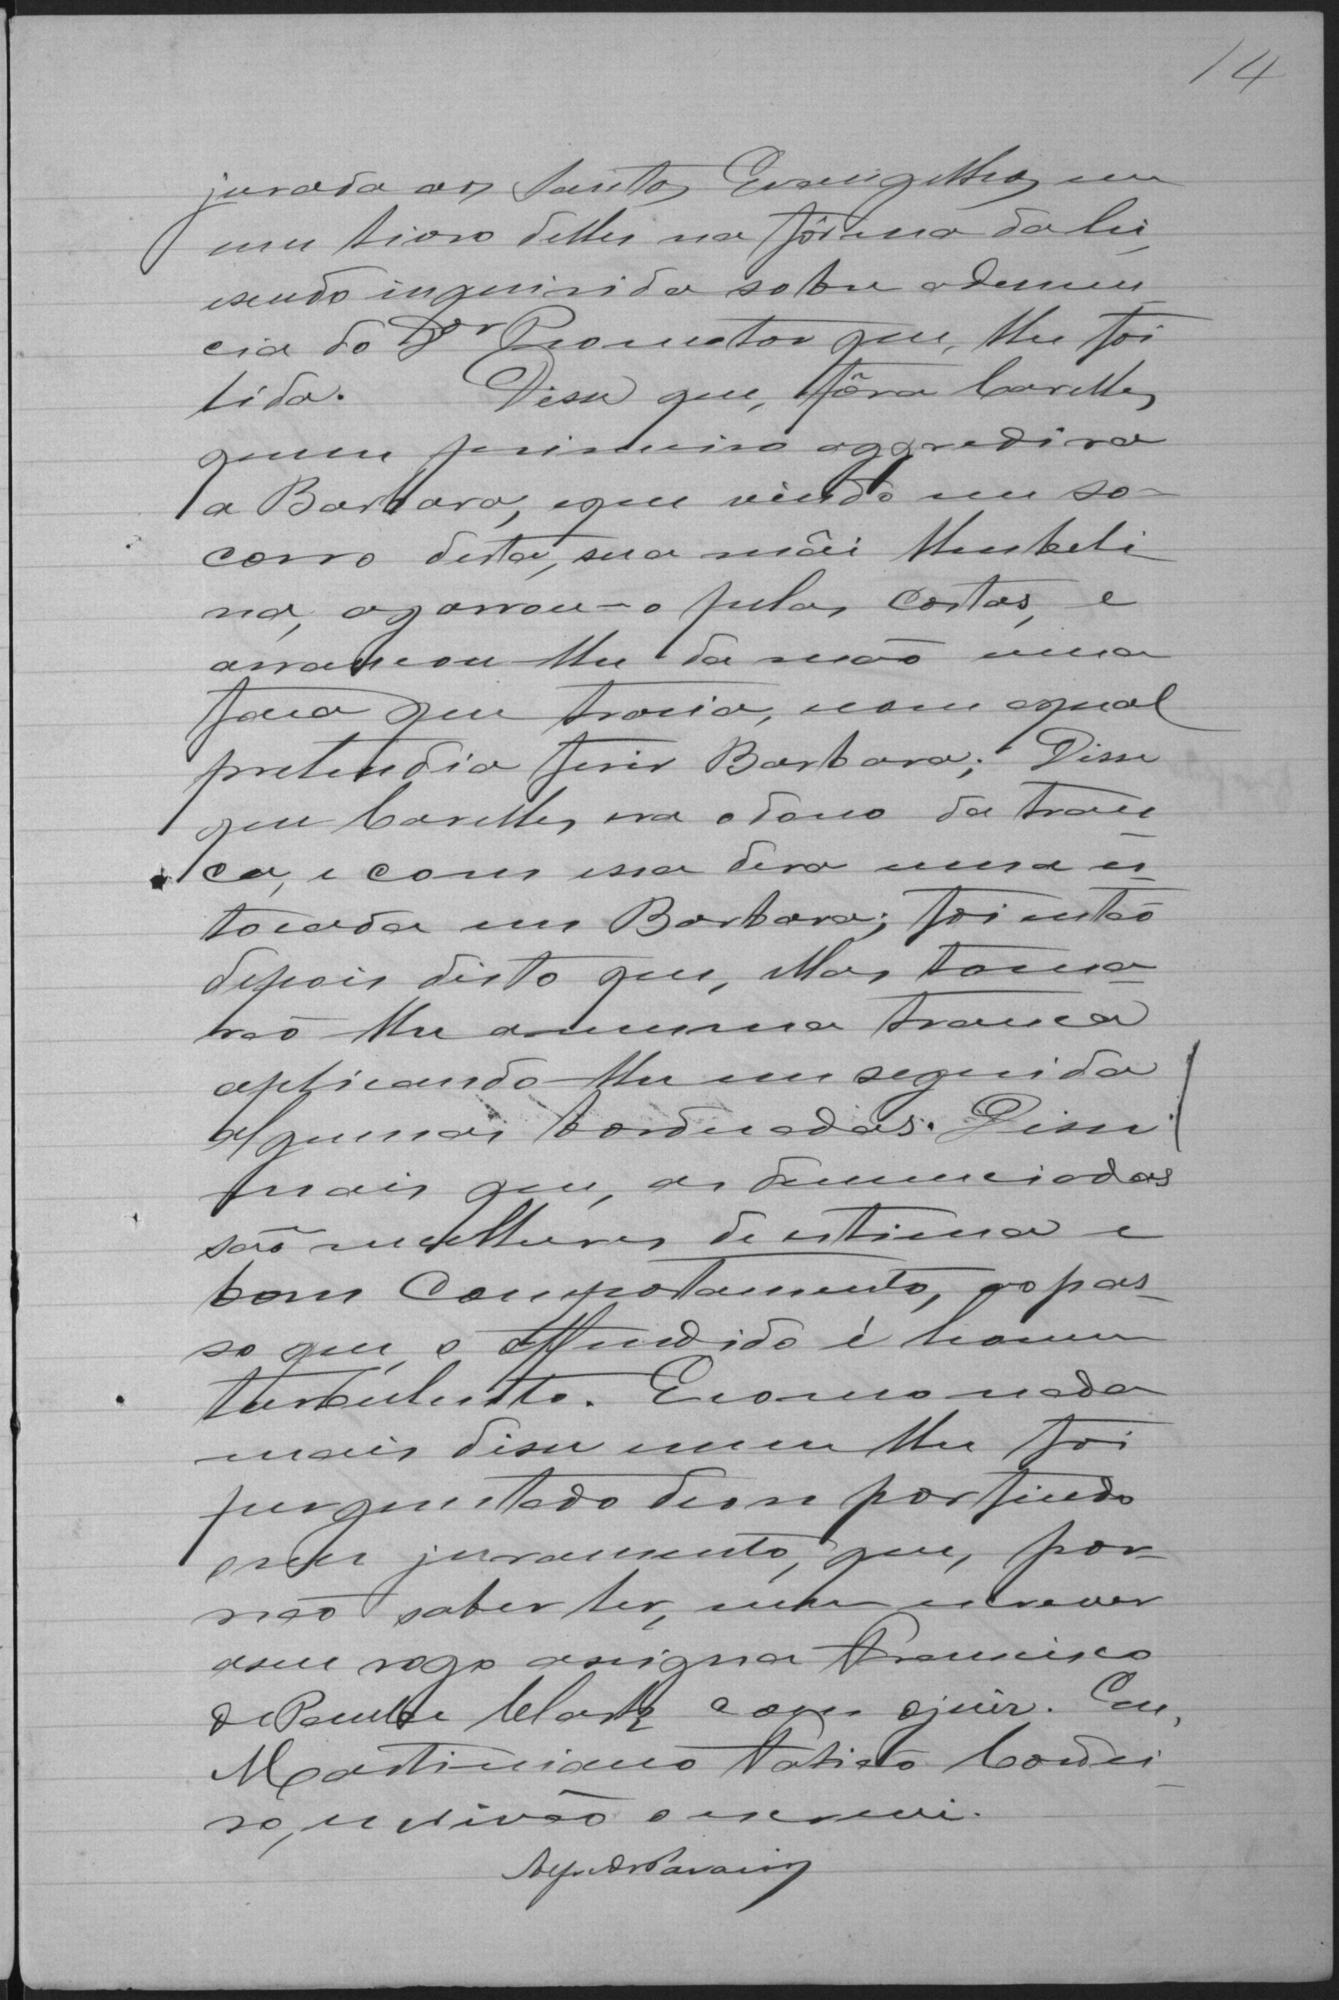 14
jurada aos Santos Evangelhos em
um livro delles na fórma da lei,
esendo inquirida sobre adenun-
cia do Dor Promotor que, lhe foi
lida. Disse que, fôra Carelles
quem primeiro aggredira
a Barbara, eque vindo em so-
corro desta, sua mãi Umbeli
na, agarrou-o pelas costas, e
arrancou-lhe da mão uma
faca que trasia, com aqual
pretendia ferir Barbara; Disse
que Carelles era odono da tran
ca, e com essa dera uma es
tocada em Barbara; foi então
depois disto que, ellas toma-
rão lhe amesma tranca
aplicando-lhe em seguida
algumas borduadas. Disse
mais que, as denunciadas
são mulheres de estima e
bom Compotamento, ao pas-
so que, o offendido é homem
turbulento. Ecomo nada
mais disse nem lhe foi
perguntado deose por findo
eseu juramento, que, por
não saber ler, nem escrever
aseu rogo assigna Francisco
de Paula com ojuiz. Eu,
Martiniano Cordei-
ro, escrivão o escrevi.